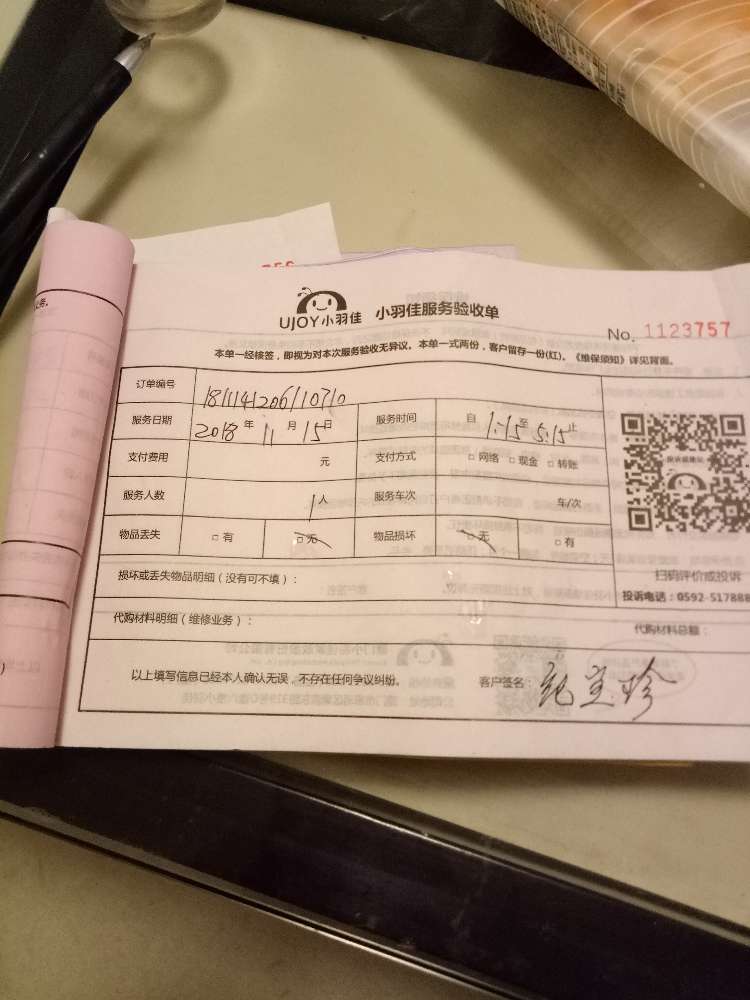 UJOY小羽佳 小羽佳服务验收单
No. 1123757
本单一经核签，即视为对本次服务验收无异议。本单一式两份，客户留存一份(红)。《维保须知》详见背面。
订单编号 181114120611070
服务日期 2018 年 11 月 15 日 服务时间 自 1:15 至 5:15 止
支付费用 元 支付方式 □ 网络 □ 现金 □ 转账
服务人数 1 人 服务车次 车/次
物品丢失 □ 有 □ 无 物品损坏 □ 无 □ 有
损坏或丢失物品明细（没有可不填）：
扫码评价或投诉
投诉电话：0592-517888
代购材料明细（维修业务）： 代购材料总额：
以上填写信息已经本人确认无误，不存在任何争议纠纷。 客户签名：纪宝珍